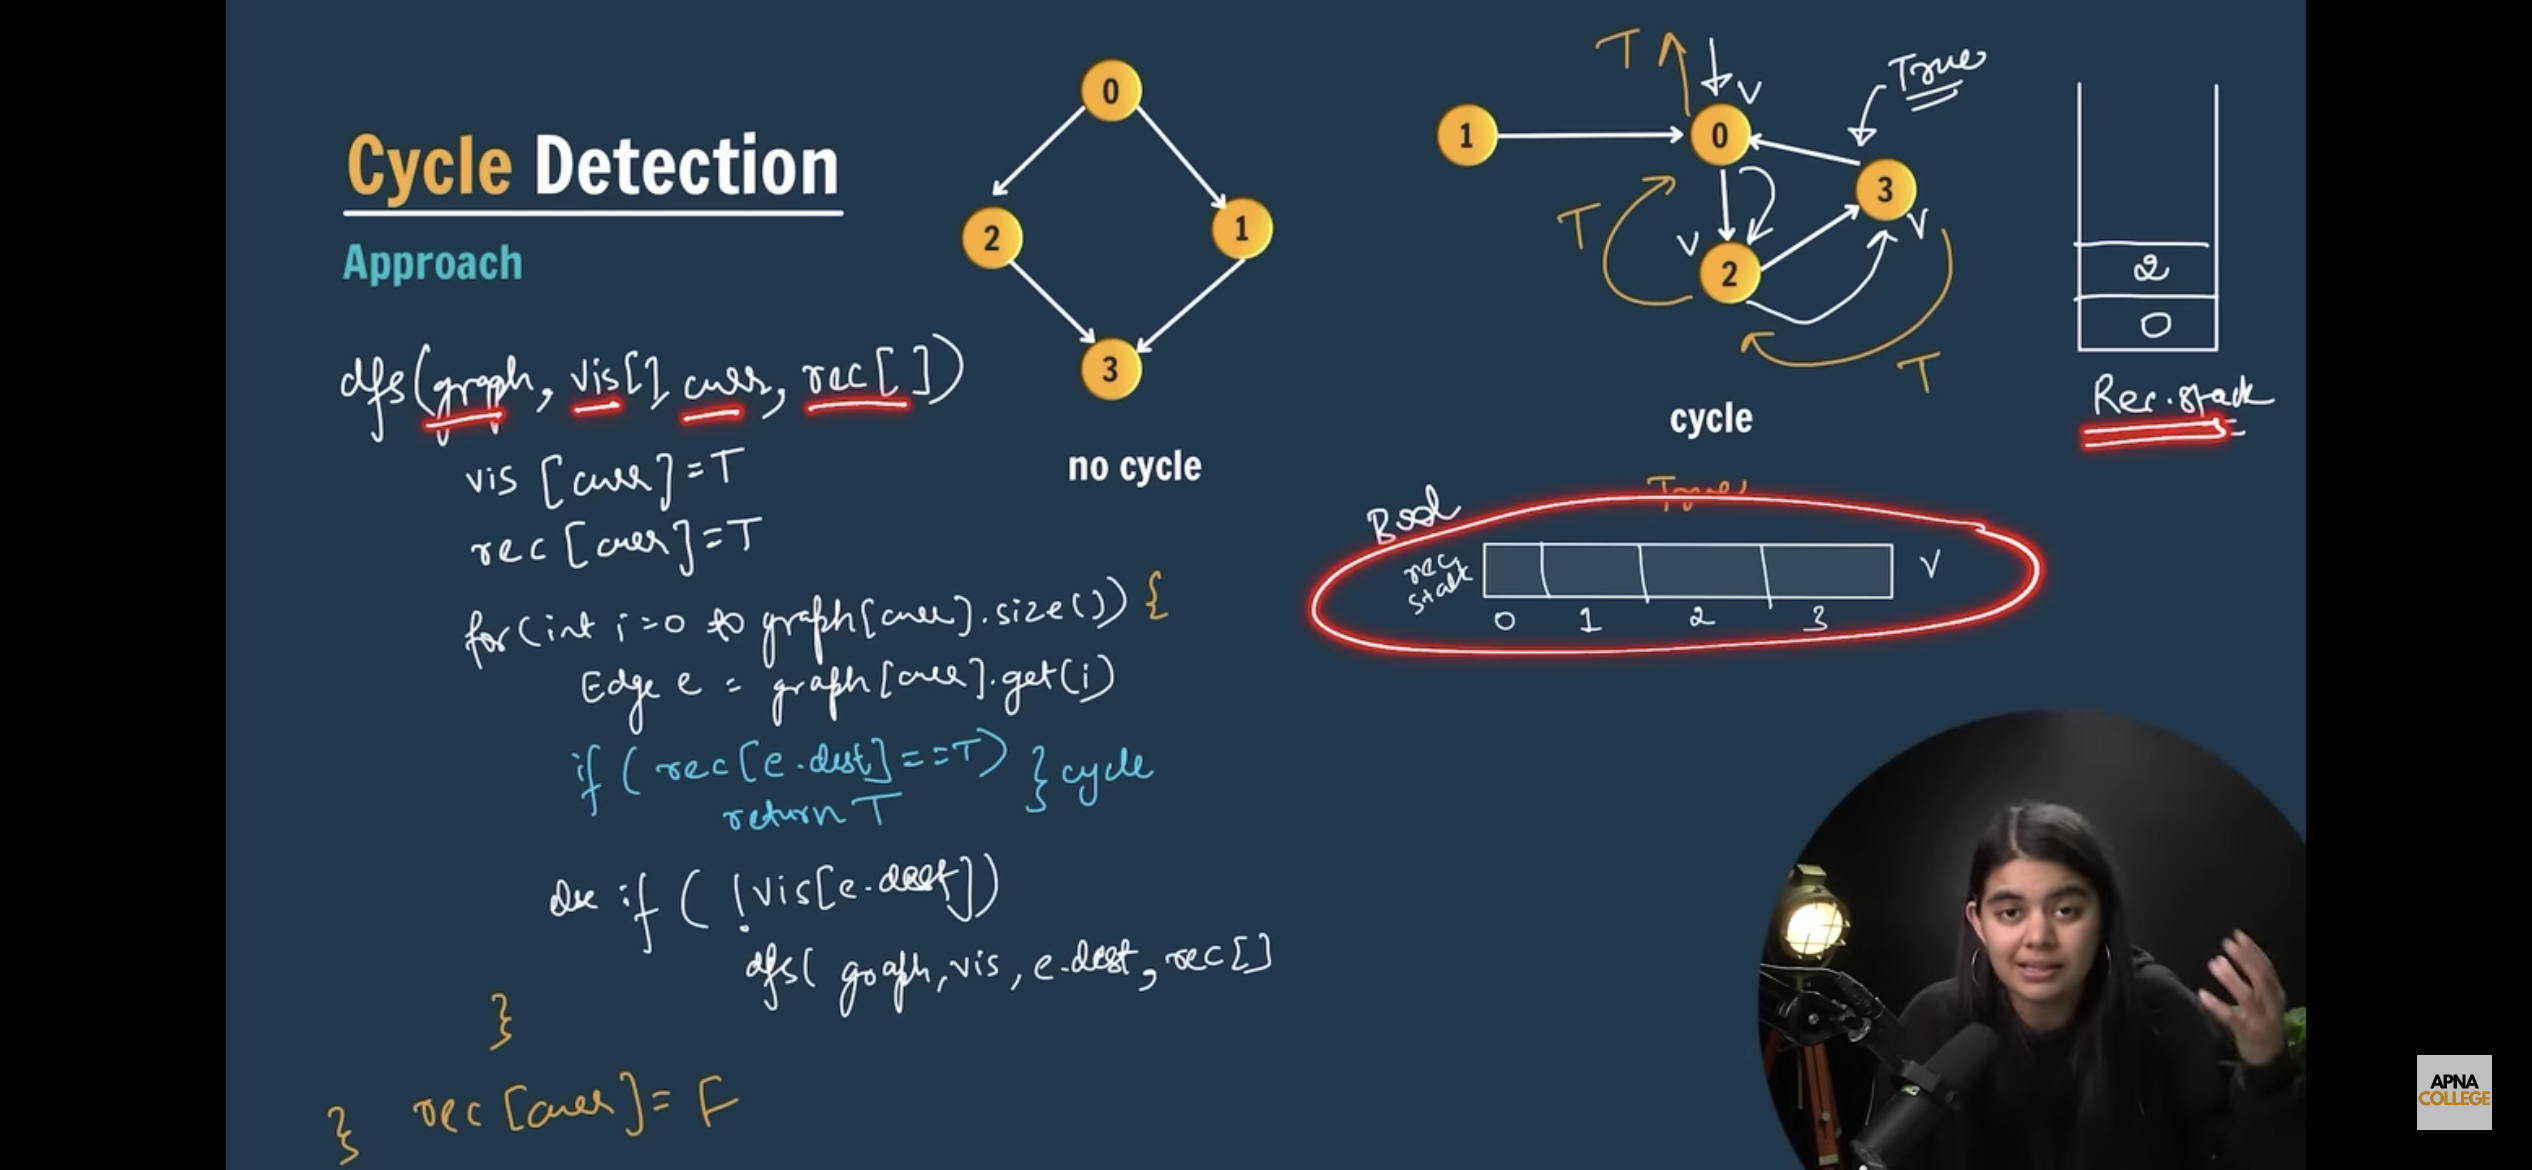 Cycle Detection
Approach
dfs(graph, vis[] curr, rec[])
vis [curr]=T
rec [curr]=T
for(int i=0 to graph[curr].size()) {
Edge e = graph[curr].get(i)
if ( rec[e.dest]==T) } cycle
return T
else if ( !vis[e.dest])
dfs( graph, vis, e.dest, rec[]
}
} rec [curr]= F
0
2
1
3
no cycle
T
V
True
1
0
3
V
T
V
2
T
cycle
2
0
Rec. stack
True
Bool
rec
stack
V
0 1 2 3
APNA
COLLEGE